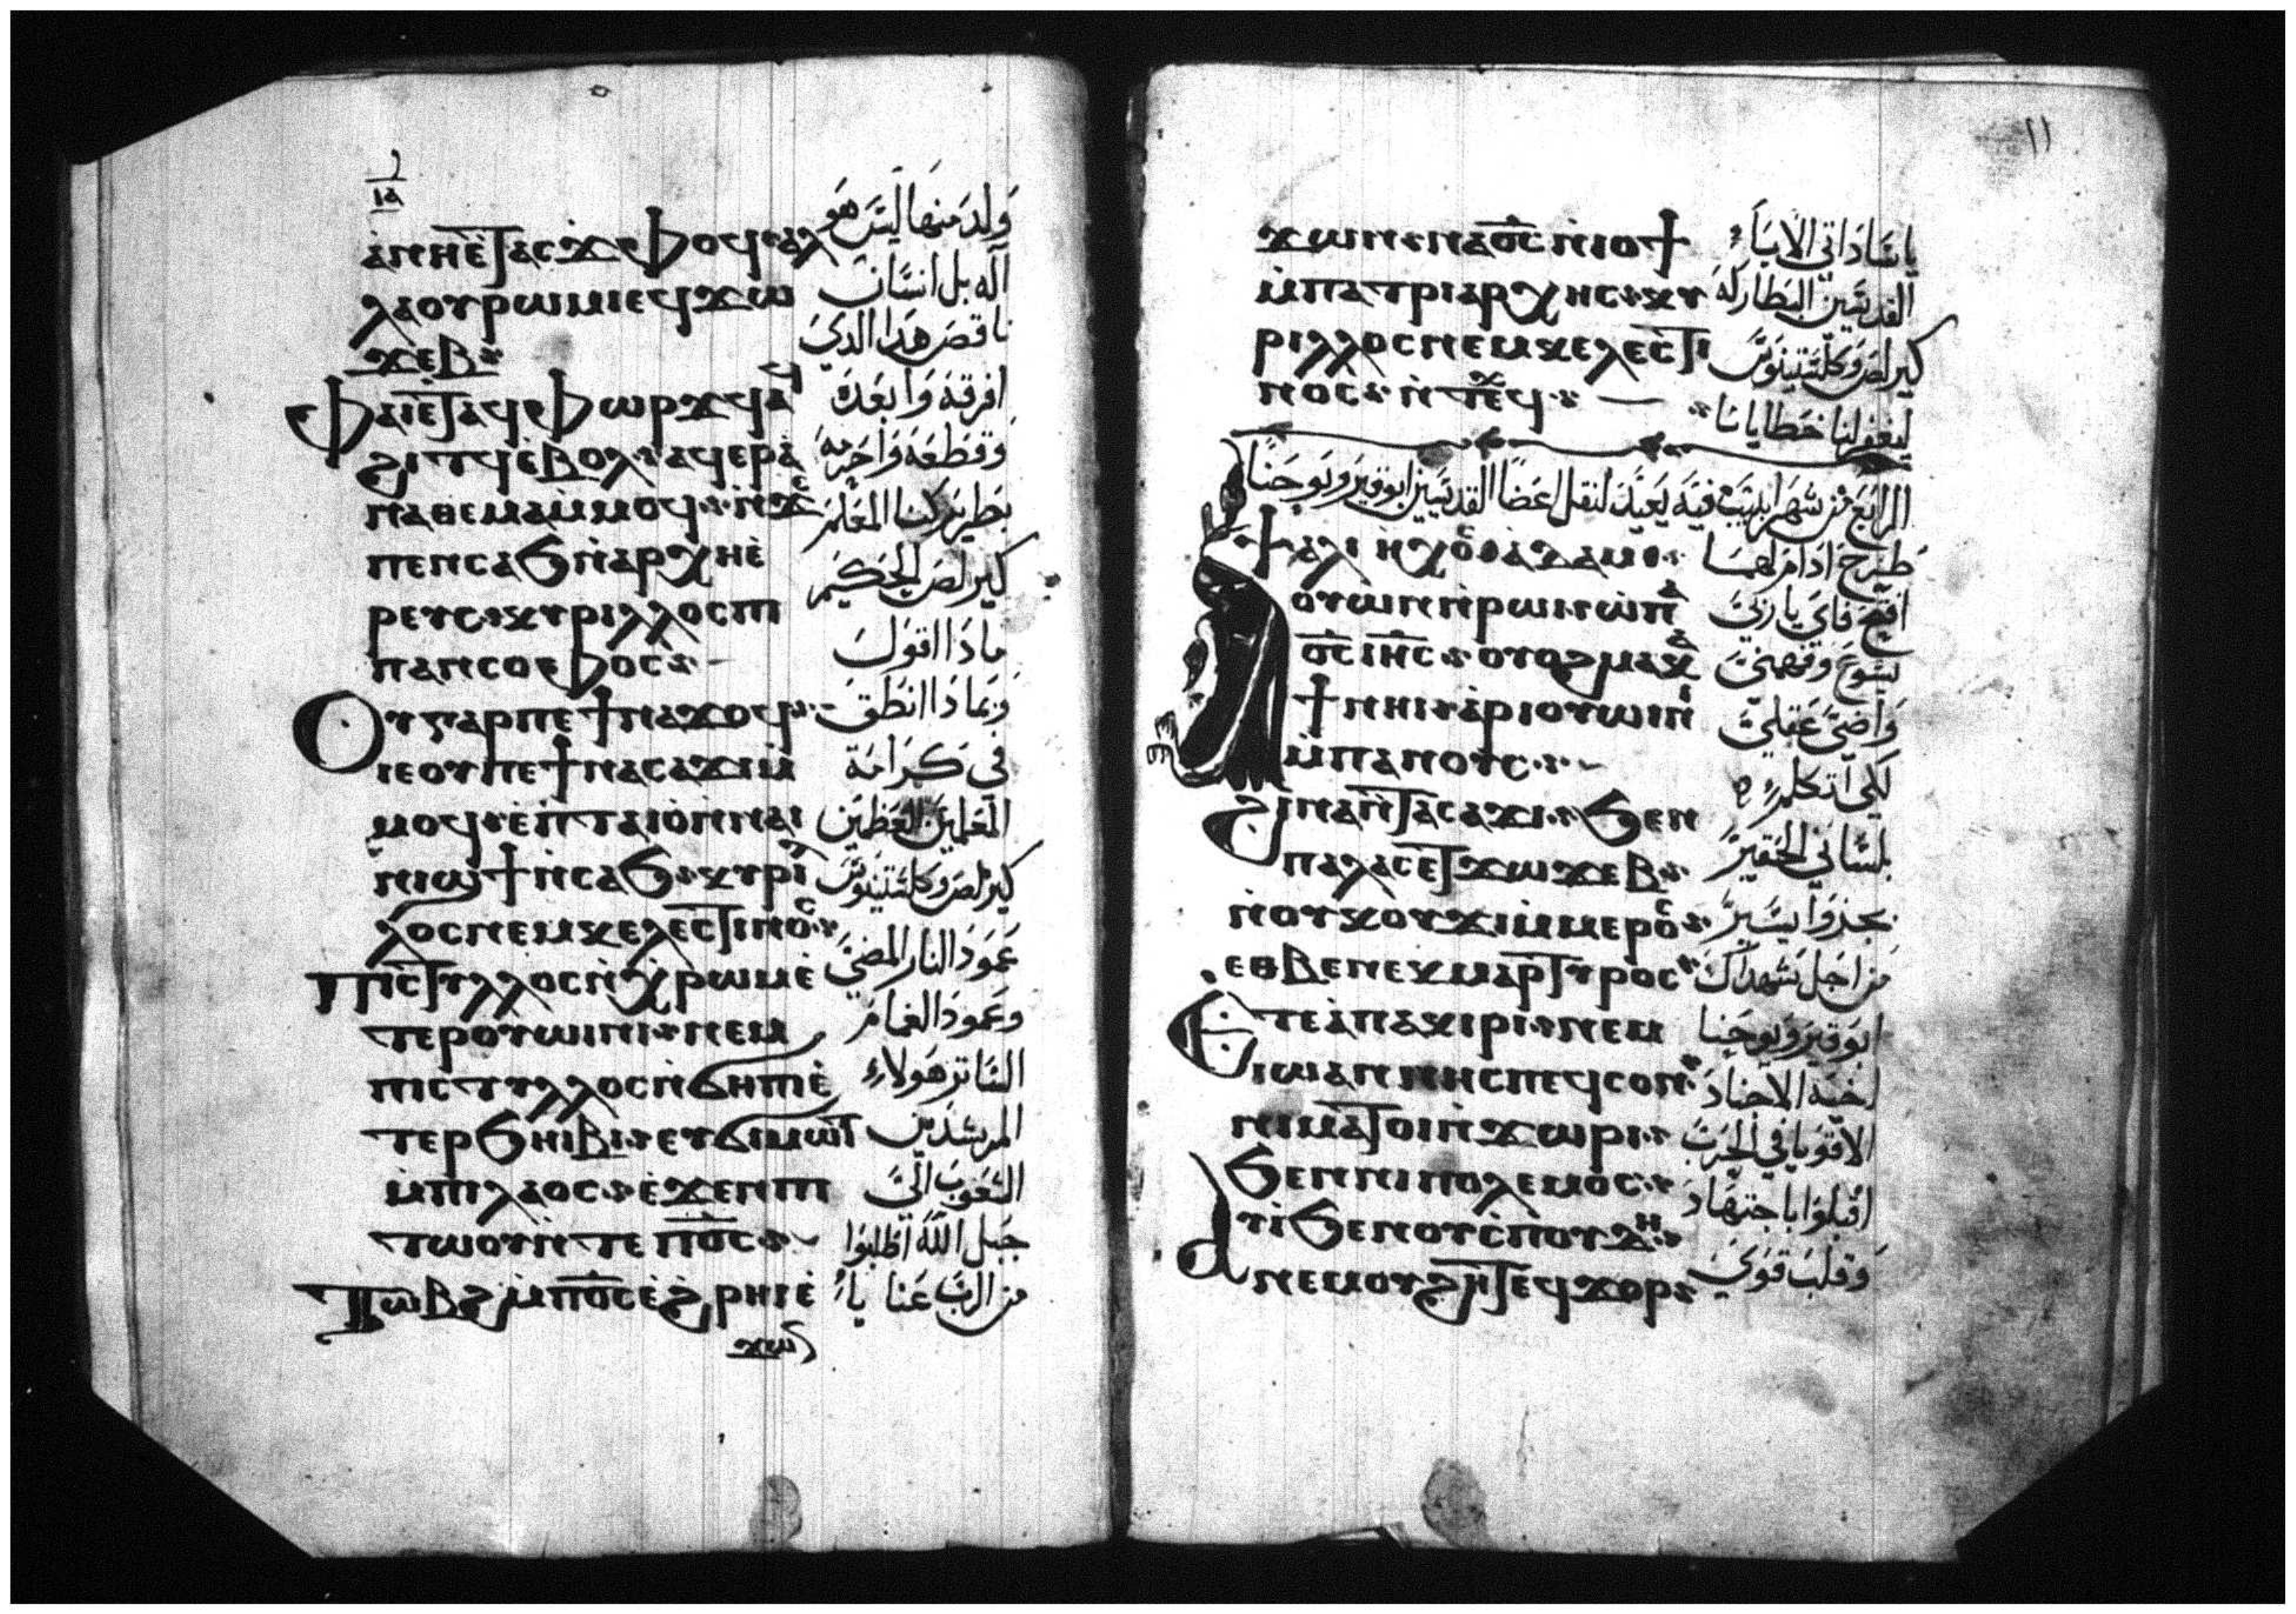 ⲓⲁ
ⲁⲛⲏⲉⲧⲁⲥϫⲉⲫⲟϥ ⲁⲗ
ⲗⲁⲟⲩⲣⲱⲙⲓⲉϥϫⲱ
ϫⲉⲃ
ⲫⲁⲓⲉⲧⲁϥⲫⲱⲣϫϥⲁϥ
ϩⲓⲧϥⲉⲃⲟⲗ ⲁϥⲉⲣⲁ
ⲛⲁⲑⲉⲙⲁⲙⲙⲟϥ ⲛϫⲉ
ⲡⲉⲛⲥⲁϧⲛⲁⲣⲭⲏⲉ
ⲣⲉⲩⲥ ⲕⲩⲣⲓⲗⲗⲟⲥⲡⲓ
ⲡⲁⲛⲥⲟⲫⲟⲥ
ⲟⲩⲅⲁⲣⲡⲉϯⲛⲁϫⲟϥ
ⲓⲉⲟⲩⲡⲉϯⲛⲁⲥⲁϫⲓⲙ
ⲙⲟϥ ⲉⲡⲧⲁⲓⲟⲛⲛⲁⲓ
ⲛⲓϣϯⲛⲥⲁϧ ⲕⲩⲣⲓⲗ
ⲗⲟⲥⲛⲉⲙⲕⲉⲗⲉⲥⲧⲓⲛⲟⲥ
ⲡⲓⲥⲧⲩⲗⲗⲟⲥⲛⲭⲣⲱⲙⲉ
ⲧⲉⲣⲟⲩⲱⲓⲛⲓ ⲛⲉⲙ
ⲡⲓⲥⲧⲩⲗⲗⲟⲥⲛϭⲏⲡⲓⲉ
ⲧⲉⲣϧⲏⲓⲃⲓ ⲉⲩϭⲓⲙⲱⲓⲧ
ⲙⲡⲓⲗⲁⲟⲥ ⲉϫⲉⲛⲡⲓ
ⲧⲱⲟⲩⲛⲧⲉⲡϭⲟⲥ
ⲧⲱⲃϩⲙⲡϭⲟⲥⲉϩⲣⲏⲓⲉ
ϫⲱ
ولد منها ليس هو
اله بل انسان
ناقص هدا الدي
افرقه وابعده
وقطعه واحرمه
بطريركنا المعلم
كيرلص الحكيم
مادا اقول
وبمادا انطق
في كرامة
المعلمين العظمين
كيرلص وكلستينوس
عمود النار المضي
وعمود الغمام
الساتر هولاء
المرشدين
الشعوب الى
جبل الله اطلبوا
من الرب عنا يا
١١
ϫⲱⲛ ⲛⲁϭⲟⲥⲛⲓⲟϯ
ⲙⲡⲁⲧⲣⲓⲁⲣⲭⲏⲥ ⲕⲩ
ⲣⲓⲗⲗⲟⲥⲛⲉⲙⲕⲉⲗⲉⲥⲧⲓ
ⲛⲟⲥ ⲛⲧⲉϥⲭ
يا ساداتي الابآء
القديسين البطاركة
كيرلص وكلستينوس
ليغفر لنا خطايانا
الرابع من شهر ابيب فيه يعيد لنقل اعضا القديسين ابوقير ويوحنا
ⲯⲁⲗⲓ ⲏⲭⲟⲥ ⲁⲇⲁⲙ
ⲁⲟⲩⲱⲛⲛⲣⲱⲓ ⲱⲡⲁ
ϭⲟⲥⲓⲏⲥ ⲟⲩⲟϩⲙⲁⲕⲁ
ϯⲛⲏⲓ ⲁⲣⲓⲟⲩⲱⲓⲛⲓ
ⲙⲡⲁⲛⲟⲩⲥ
ϩⲓⲛⲁⲛⲧⲁⲥⲁϫⲓ ϧⲉⲛ
ⲡⲁⲗⲁⲥⲉⲧϫⲱϫⲉⲃ
ⲛⲟⲩⲕⲟⲩϫⲓⲙⲙⲉⲣⲟⲥ
ⲉⲑⲃⲉⲛⲉⲕⲙⲁⲣⲧⲩⲣⲟⲥ
ⲉⲧⲉⲁⲡⲁⲕⲓⲣⲓ ⲛⲉⲙ
ⲓⲱⲁⲛⲛⲏⲥⲡⲉϥⲥⲟⲛ
ⲛⲓⲙⲁⲧⲟⲓⲛϫⲱⲣⲓ
ϧⲉⲛⲛⲓⲡⲟⲗⲉⲙⲟⲥ
ⲁⲩⲓϧⲉⲛⲟⲩⲥⲡⲟⲩⲇⲏ
ⲛⲉⲙⲟⲩϩⲏⲧⲉϥϫⲟⲣ
طرح ادام لهما
افتح فاي يا ربي
يسوع وفهمني
واضئ عقلي
لكي اتكلم
بلساني الحقير
بجزوا يسير
من اجل شهداك
ابوقير ويوحنا
اخيه الاجناد
الاقويا في الحرب
اقبلوا باجتهاد
وقلب قوي